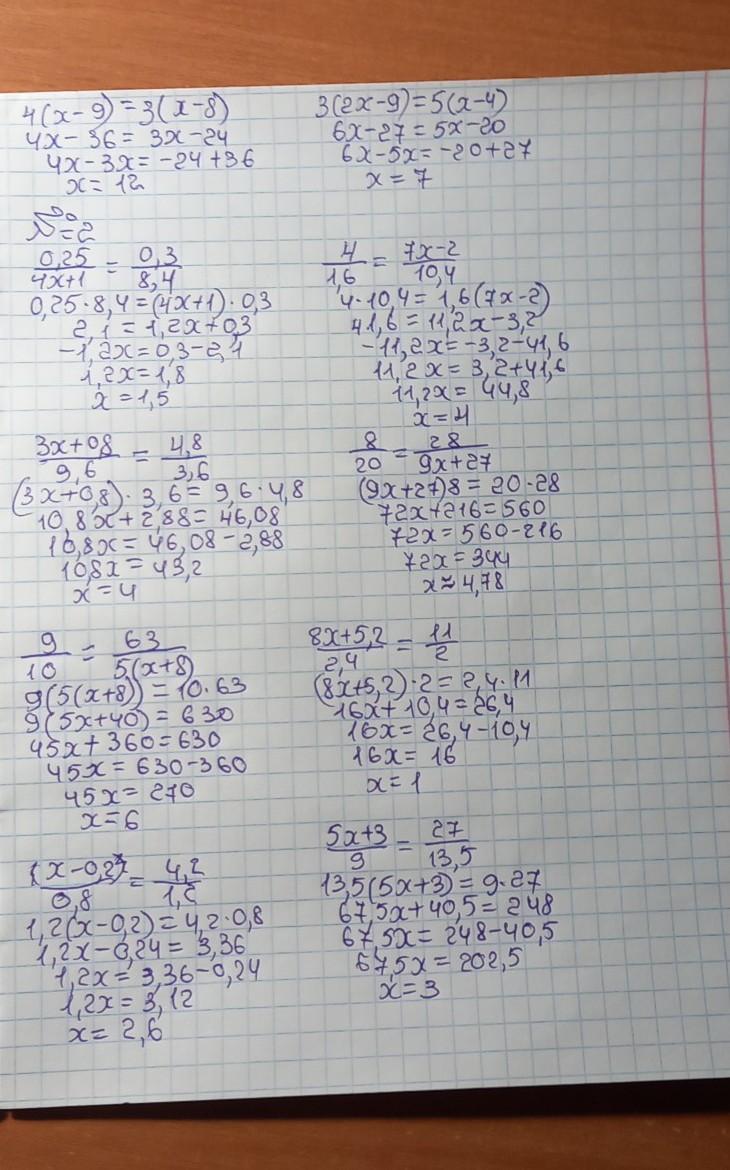 4(x-9)=3(x-8)
4x-36=3x-24
4x-3x=-24+36
x=12
3(2x-9)=5(x-4)
6x-27=5x-20
6x-5x=-20+27
x=7
№=2
0,25/4x+1 = 0,3/8,4
0,25·8,4=(4x+1)·0,3
2,1=1,2x+0,3
-1,2x=0,3-2,1
1,2x=1,8
x=1,5
4/1,6 = 7x-2/10,4
4·10,4=1,6(7x-2)
41,6=11,2x-3,2
-11,2x=-3,2-41,6
11,2x=3,2+41,6
11,2x=44,8
x=4
3x+0,8/9,6 = 4,8/3,6
(3x+0,8)·3,6=9,6·4,8
10,8x+2,88=46,08
10,8x=46,08-2,88
10,8x=43,2
x=4
8/20 = 28/9x+27
(9x+27)8=20·28
72x+216=560
72x=560-216
72x=344
x≈4,78
9/10 = 63/5(x+8)
9(5(x+8))=10·63
9(5x+40)=630
45x+360=630
45x=630-360
45x=270
x=6
8x+5,2/2,4 = 11/2
(8x+5,2)·2=2,4·11
16x+10,4=26,4
16x=26,4-10,4
16x=16
x=1
(x-0,2)/0,8 = 4,2/1,2
1,2(x-0,2)=4,2·0,8
1,2x-0,24=3,36
1,2x=3,36-0,24
1,2x=3,12
x=2,6
5x+3/9 = 27/13,5
13,5(5x+3)=9·27
67,5x+40,5=248
67,5x=248-40,5
67,5x=202,5
x=3